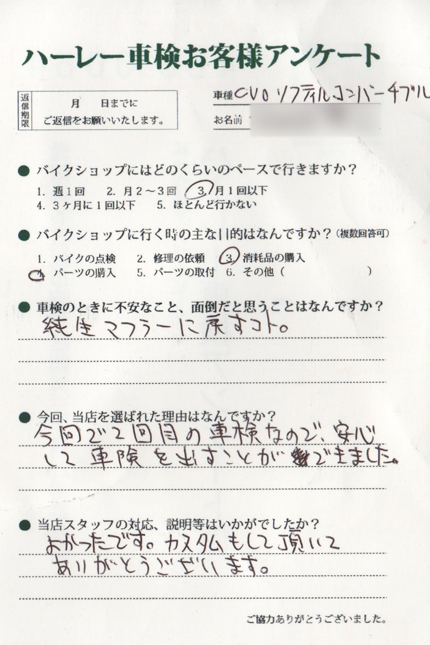 ハーレー車検お客様アンケート
返信期限
月　日までに
ご返信をお願いいたします。
車種 CVO ソフテイルコンバーチブル
お名前
● バイクショップにはどのくらいのペースで行きますか？
1. 週1回　2. 月2～3回　3. 月1回以下
4. 3ヶ月に1回以下　5. ほとんど行かない
● バイクショップに行く時の主な目的はなんですか？（複数回答可）
1. バイクの点検　2. 修理の依頼　3. 消耗品の購入
パーツの購入　5. パーツの取付　6. その他（　　　）
● 車検のときに不安なこと、面倒だと思うことはなんですか？
純生マフラーに戻すコト。
● 今回、当店を選ばれた理由はなんですか？
今回で2回目の車検なので、安心
して車険を出すことができました。
● 当店スタッフの対応、説明等はいかがでしたか？
よかったです。カスタムもして頂いて
ありがとうございます。
ご協力ありがとうございました。